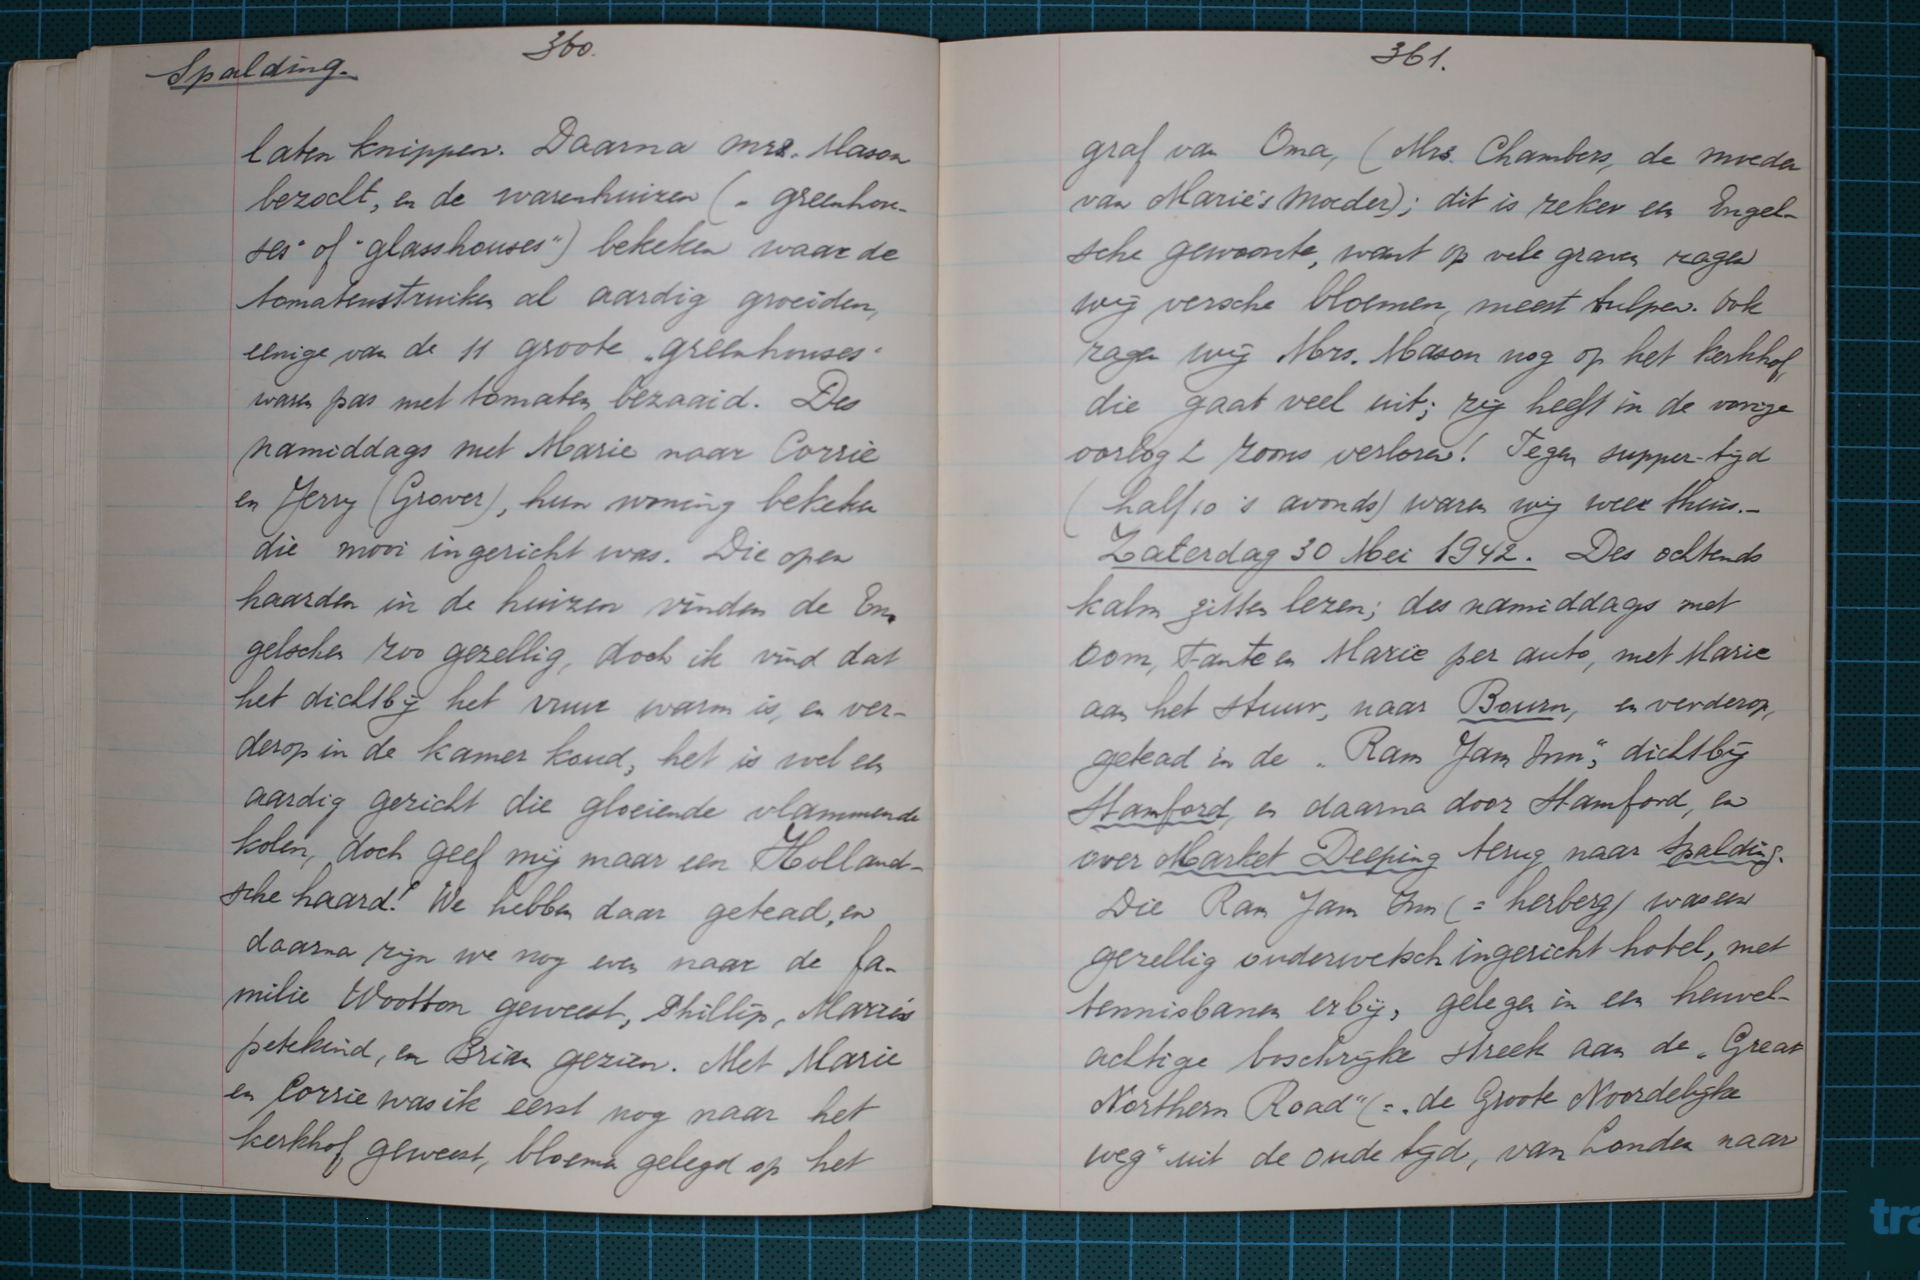 Spalding.
360.
laten knippen. Daarna Mrs. Mason
bezocht, en de warenhuizen (= greenhou-
ses" of "glasshouses") bekeken waar de
tomatenstruiken al aardig groeiden,
eenige van de 11 groote „greenhouses"
waren pas met tomaten bezaaid. Des
namiddags met Marie naar Corrie
en Jerry (Grover), hun woning bekeken
die mooi ingericht was. Die open
haarden in de huizen vinden de En-
gelschen zoo gezellig, doch ik vind dat
het dichtbij het vuur warm is, en ver-
derop in de kamer koud, het is wel een
aardig gezicht die gloeiende vlammende
kolen, doch geef mij maar een Holland-
sche haard! We hebben daar getead, en
daarna zijn we nog even naar de fa-
milie Wootton geweest, Phillip, Marie's
petekind, en Brian gezien. Met Marie
en Corrie was ik eerst nog naar het
kerkhof geweest, bloemen gelegd op het
361.
graf van Oma, (Mrs. Chambers, de moeder
van Marie's Moeder); dit is zeker een Engel-
sche gewoonte, want op vele graven zagen
wij versche bloemen, meest tulpen. Ook
zagen wij Mrs. Mason nog op het kerkhof,
die gaat veel uit; zij heeft in de vorige
oorlog 2 zoons verloren! Tegen supper-tijd
(half 10 's avonds) waren wij weer thuis.-
Zaterdag 30 Mei 1942. Des ochtends
kalm zitten lezen; des namiddags met
Oom, Tante en Marie per auto, met Marie
aan het stuur, naar Bourn, en verderop,
getead in de „Ram Jam Inn", dichtbij
Stamford, en daarna door Stamford, en
over Market Deeping terug naar Spalding.
Die Ram Jam Inn (= herberg) was een
gezellig ouderwetsch ingericht hotel, met
tennisbanen erbij, gelegen in een heuvel-
achtige boschrijke streek aan de „Great
Northern Road" (= „de Groote Noordelijke
weg" uit de oude tijd, van Londen naar
tra